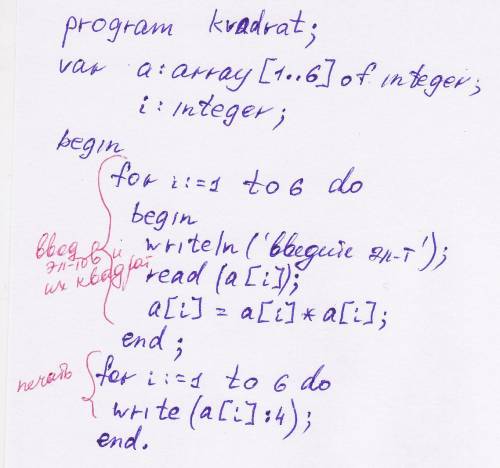 program kvadrat;
var a: array [1..6] of integer;
i: integer;
begin
for i:=1 to 6 do
begin
writeln ('введите эл-т');
read (a[i]);
a[i] = a[i]*a[i];
end;
ввод
эл-тов и
их квадрат
for i:=1 to 6 do
write (a[i]:4);
end.
печать